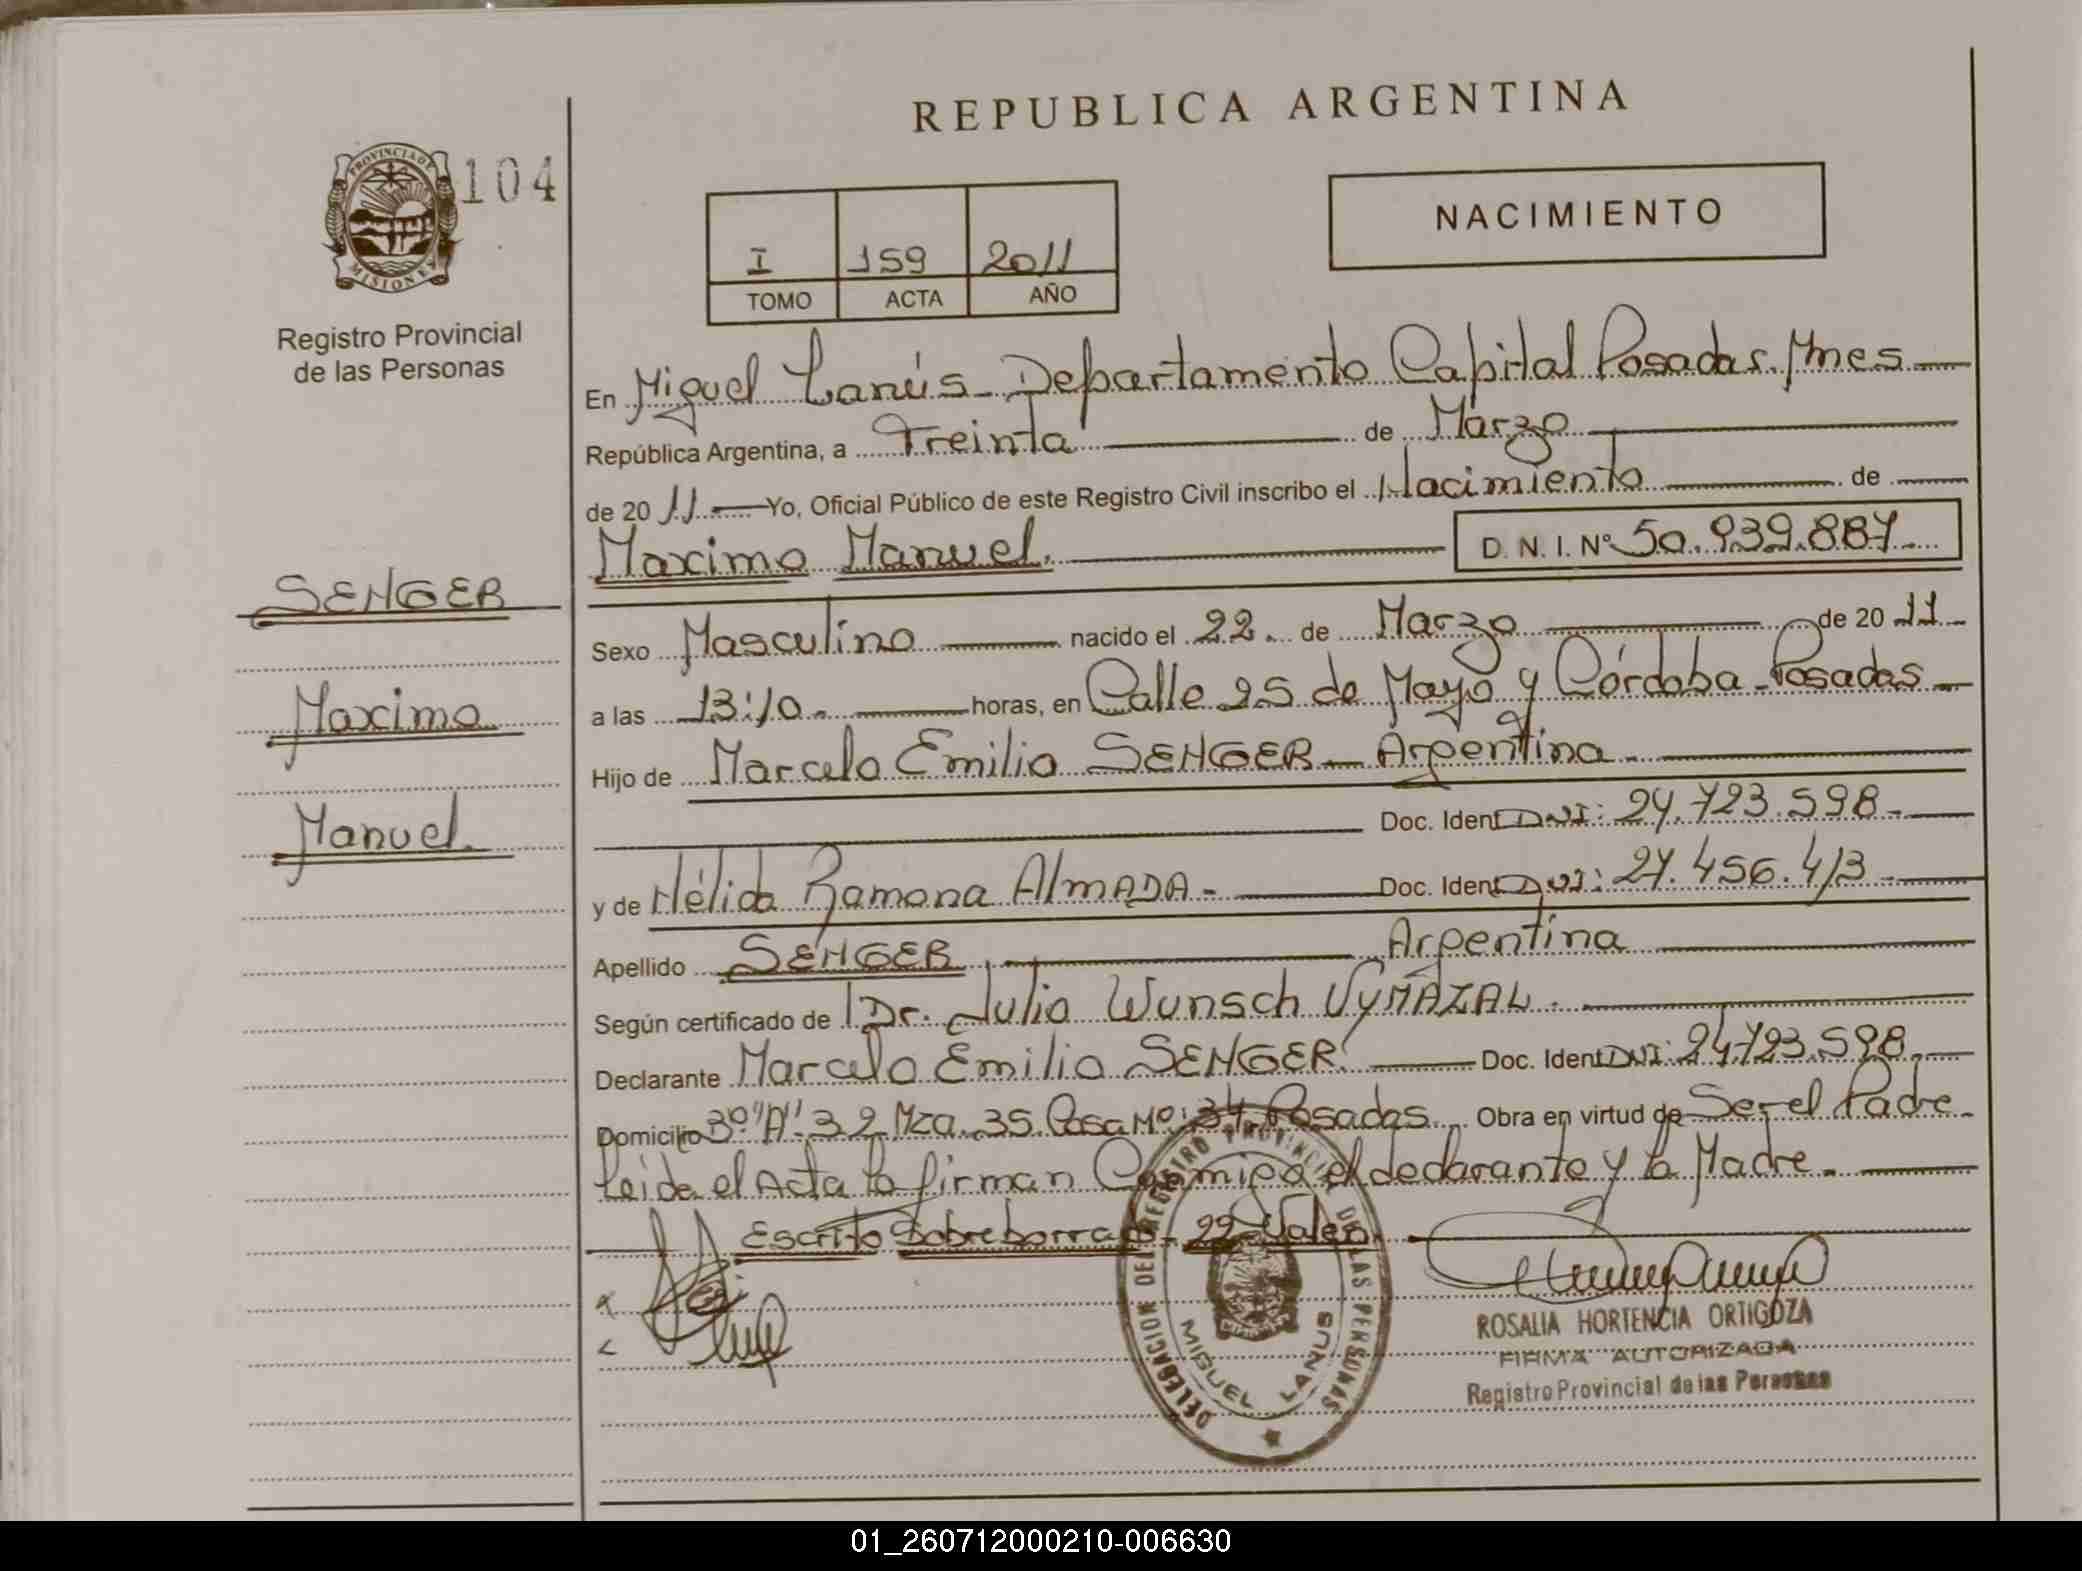 REPUBLICA ARGENTINA
PROVINCIA DE MISIONES
104
Registro Provincial
de las Personas
NACIMIENTO
I 159 2011
TOMO ACTA AÑO
En Miguel Lanús - Departamento Capital Posadas. Mnes
República Argentina, a Treinta de Marzo
de 2011 Yo, Oficial Público de este Registro Civil inscribo el Nacimiento de
Maximo Manuel. D. N. I. Nº 50.939.887
SENGER
Maximo
Manuel.
Sexo Masculino nacido el 22. de Marzo de 2011
a las 13:10. horas, en Calle 25 de Mayo y Córdoba - Posadas
Hijo de Marcelo Emilio SENGER - Argentina -
Doc. Ident DNI: 24.723.598 -
y de Nélida Ramona AlmADA - Doc. Ident DNI: 27.456.413 -
Apellido SENGER Argentina
Según certificado de Dr. Julio Wunsch VYMAZAL.
Declarante Marcelo Emilio SENGER. Doc. Ident DNI: 24.723.598
Domicilio 3º "A" 32 Mza. 35 Casa Nº: 34 Posadas Obra en virtud de Ser el Padre
Leida el Acta la firman Conmigo el declarante y la Madre
Escrito Sobreborrado - 22 - Valen.
DELEGACION DEL REGISTRO PROVINCIAL DE LAS PERSONAS
MIGUEL LANUS
ROSALIA HORTENCIA ORTIGOZA
FIRMA AUTORIZADA
Registro Provincial de las Personas
01_260712000210-006630